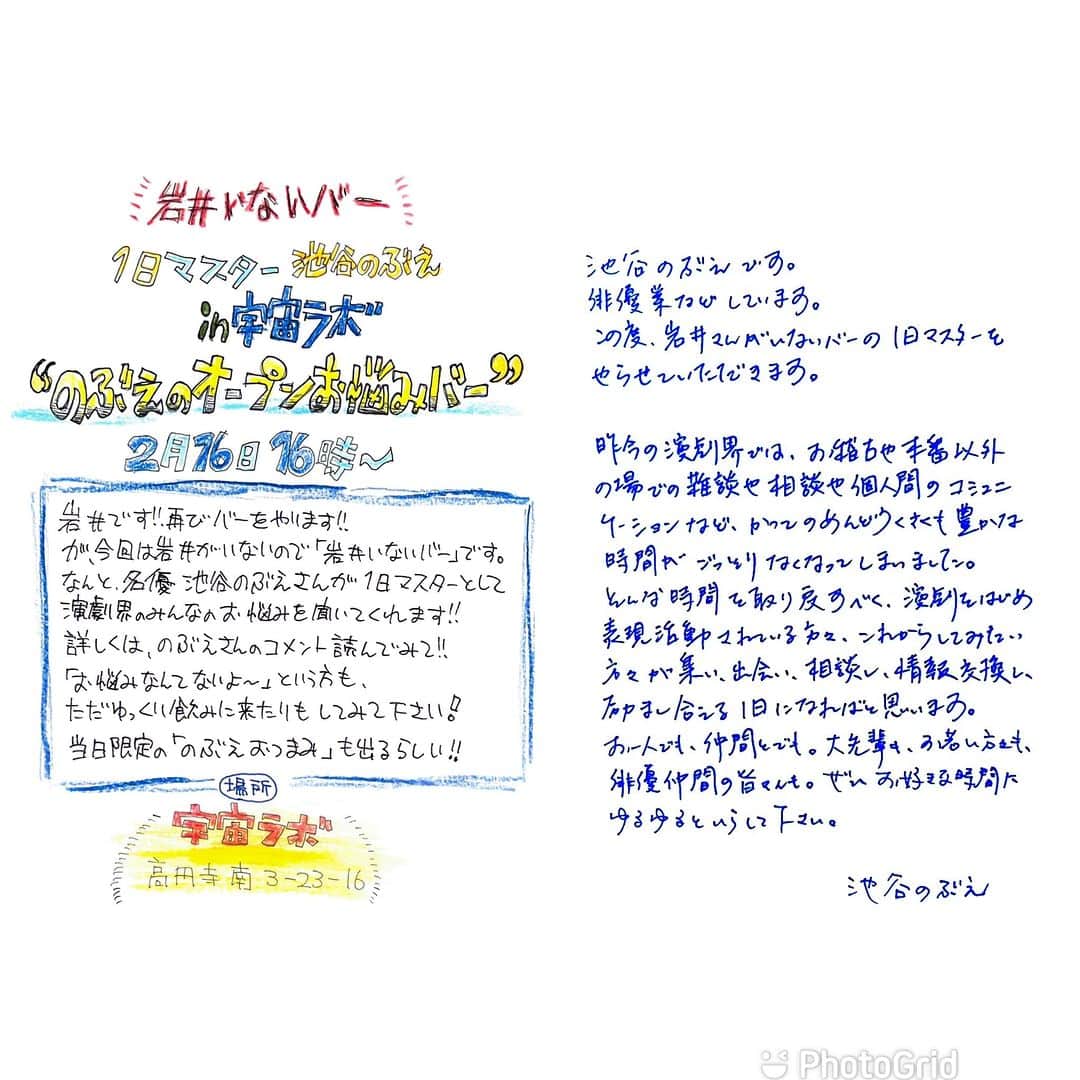 岩井いないバー
1日マスター 池谷のぶえ
in宇宙ラボ
“のぶえのオープンお悩みバー”
2月16日 16時〜
岩井です!!再びバーをやります!!
が、今回は岩井がいないので「岩井いないバー」です。
なんと、名優 池谷のぶえさんが1日マスターとして
演劇界のみんなのお悩みを聞いてくれます!!
詳しくは、のぶえさんのコメント読んでみて!!
「お悩みなんてないよ〜」という方も、
ただゆっくり飲みに来たりもしてみて下さい!
当日限定の「のぶえおつまみ」も出るらしい!!
場所
宇宙ラボ
高円寺南3-23-16
池谷のぶえです。
俳優業などしています。
この度、岩井さんがいないバーの1日マスターを
やらせていただきます。
昨今の演劇界では、お稽古や本番以外
の場での雑談や相談や個人間のコミュニ
ケーションなど、かつてのめんどうくさくも豊かな
時間がごっそりなくなってしまいました。
そんな時間を取り戻すべく、演劇をはじめ
表現活動されている方々、これからしてみたい
方々が集い、出会い、相談し、情報交換し、
励まし合える1日になればと思います。
お一人でも、仲間とでも。大先輩も、お若い方も、
俳優仲間の皆さんも。ぜひお好きな時間に
ゆるゆるといらして下さい。
池谷のぶえ
PhotoGrid